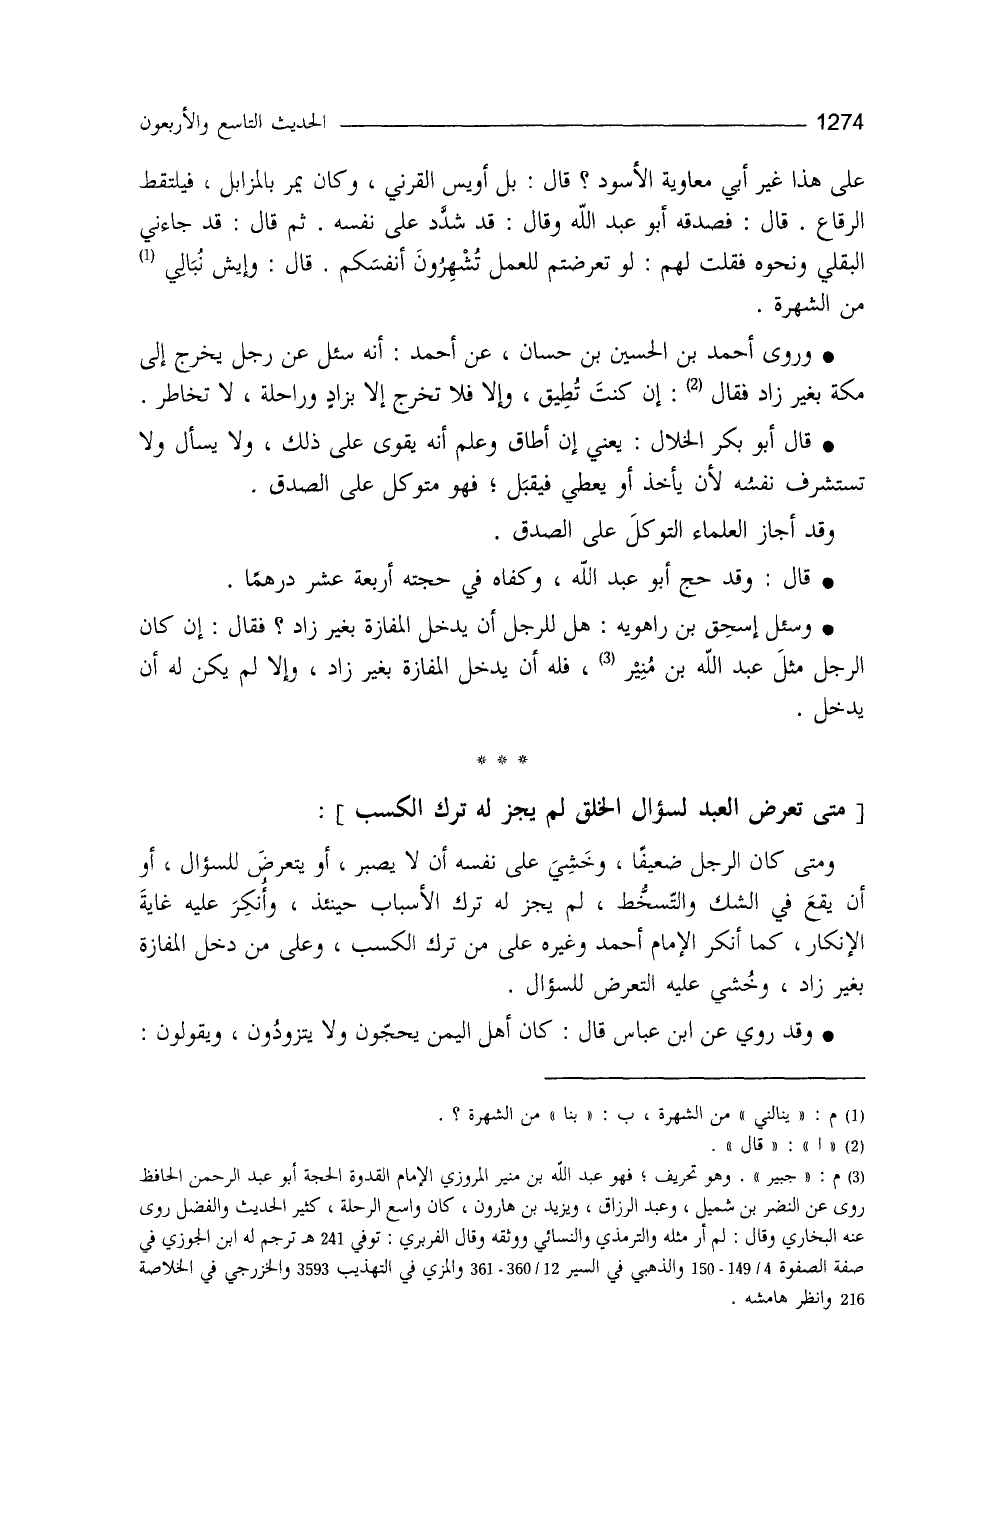 1274 الحديث التاسع والأربعون
على هذا غير أبي معاوية الأسود ؟ قال : بل أويس القرني ، وكان يمر بالمزابل ، فيلتقط
الرقاع . قال : فصدقه أبو عبد الله وقال : قد شدَّد على نفسه . ثم قال : قد جاءني
البقلي ونحوه فقلت لهم : لو تعرضتم للعمل تُشْهِرُونَ أنفسَكم . قال : وإيش نُبَالِي (1)
من الشهرة .
● وروى أحمد بن الحسين بن حسان ، عن أحمد : أنه سئل عن رجل يخرج إلى
مكة بغير زاد فقال (2) : إن كنتَ تُطِيق ، وإلا فلا تخرج إلا بزادٍ وراحلة ، لا تخاطر .
● قال أبو بكر الخلال : يعني إن أطاق وعلم أنه يقوى على ذلك ، ولا يسأل ولا
تستشرف نفسُه لأن يأخذ أو يعطي فيقبَل ؛ فهو متوكل على الصدق .
وقد أجاز العلماء التوكلَ على الصدق .
● قال : وقد حج أبو عبد الله ، وكفاه في حجته أربعة عشر درهمًا .
● وسئل إسحق بن راهويه : هل للرجل أن يدخل المفازة بغير زاد ؟ فقال : إن كان
الرجل مثلَ عبد الله بن مُنِيْر (3) ، فله أن يدخل المفازة بغير زاد ، وإلا لم يكن له أن
يدخل .
* * *
[ متى تعرض العبد لسؤال الخلق لم يجز له ترك الكسب ] :
ومتى كان الرجل ضعيفًا ، وخَشِيَ على نفسه أن لا يصبر ، أو يتعرضَ للسؤال ، أو
أن يقعَ في الشك والتّسخُّط ، لم يجز له ترك الأسباب حينئذ ، وأُنكِرَ عليه غايةَ
الإنكار ، كما أنكر الإمام أحمد وغيره على من ترك الكسب ، وعلى من دخل المفازة
بغير زاد ، وخُشي عليه التعرض للسؤال .
● وقد روي عن ابن عباس قال : كان أهل اليمن يحجّون ولا يتزودُون ، ويقولون :
(1) م : « ينالني » من الشهرة ، ب : « بنا » من الشهرة ؟ .
(2) « ا » : « قال » .
(3) م : « جبير » . وهو تحريف ؛ فهو عبد الله بن منير المروزي الإمام القدوة الحجة أبو عبد الرحمن الحافظ
روى عن النضر بن شميل ، وعبد الرزاق ، ويزيد بن هارون ، كان واسع الرحلة ، كثير الحديث والفضل روى
عنه البخاري وقال : لم أر مثله والترمذي والنسائي ووثقه وقال الفربري : توفي 241 هـ ترجم له ابن الجوزي في
صفة الصفوة 4 / 149 - 150 والذهبي في السير 12 / 360 - 361 والمزي في التهذيب 3593 والخزرجي في الخلاصة
216 وانظر هامشه .